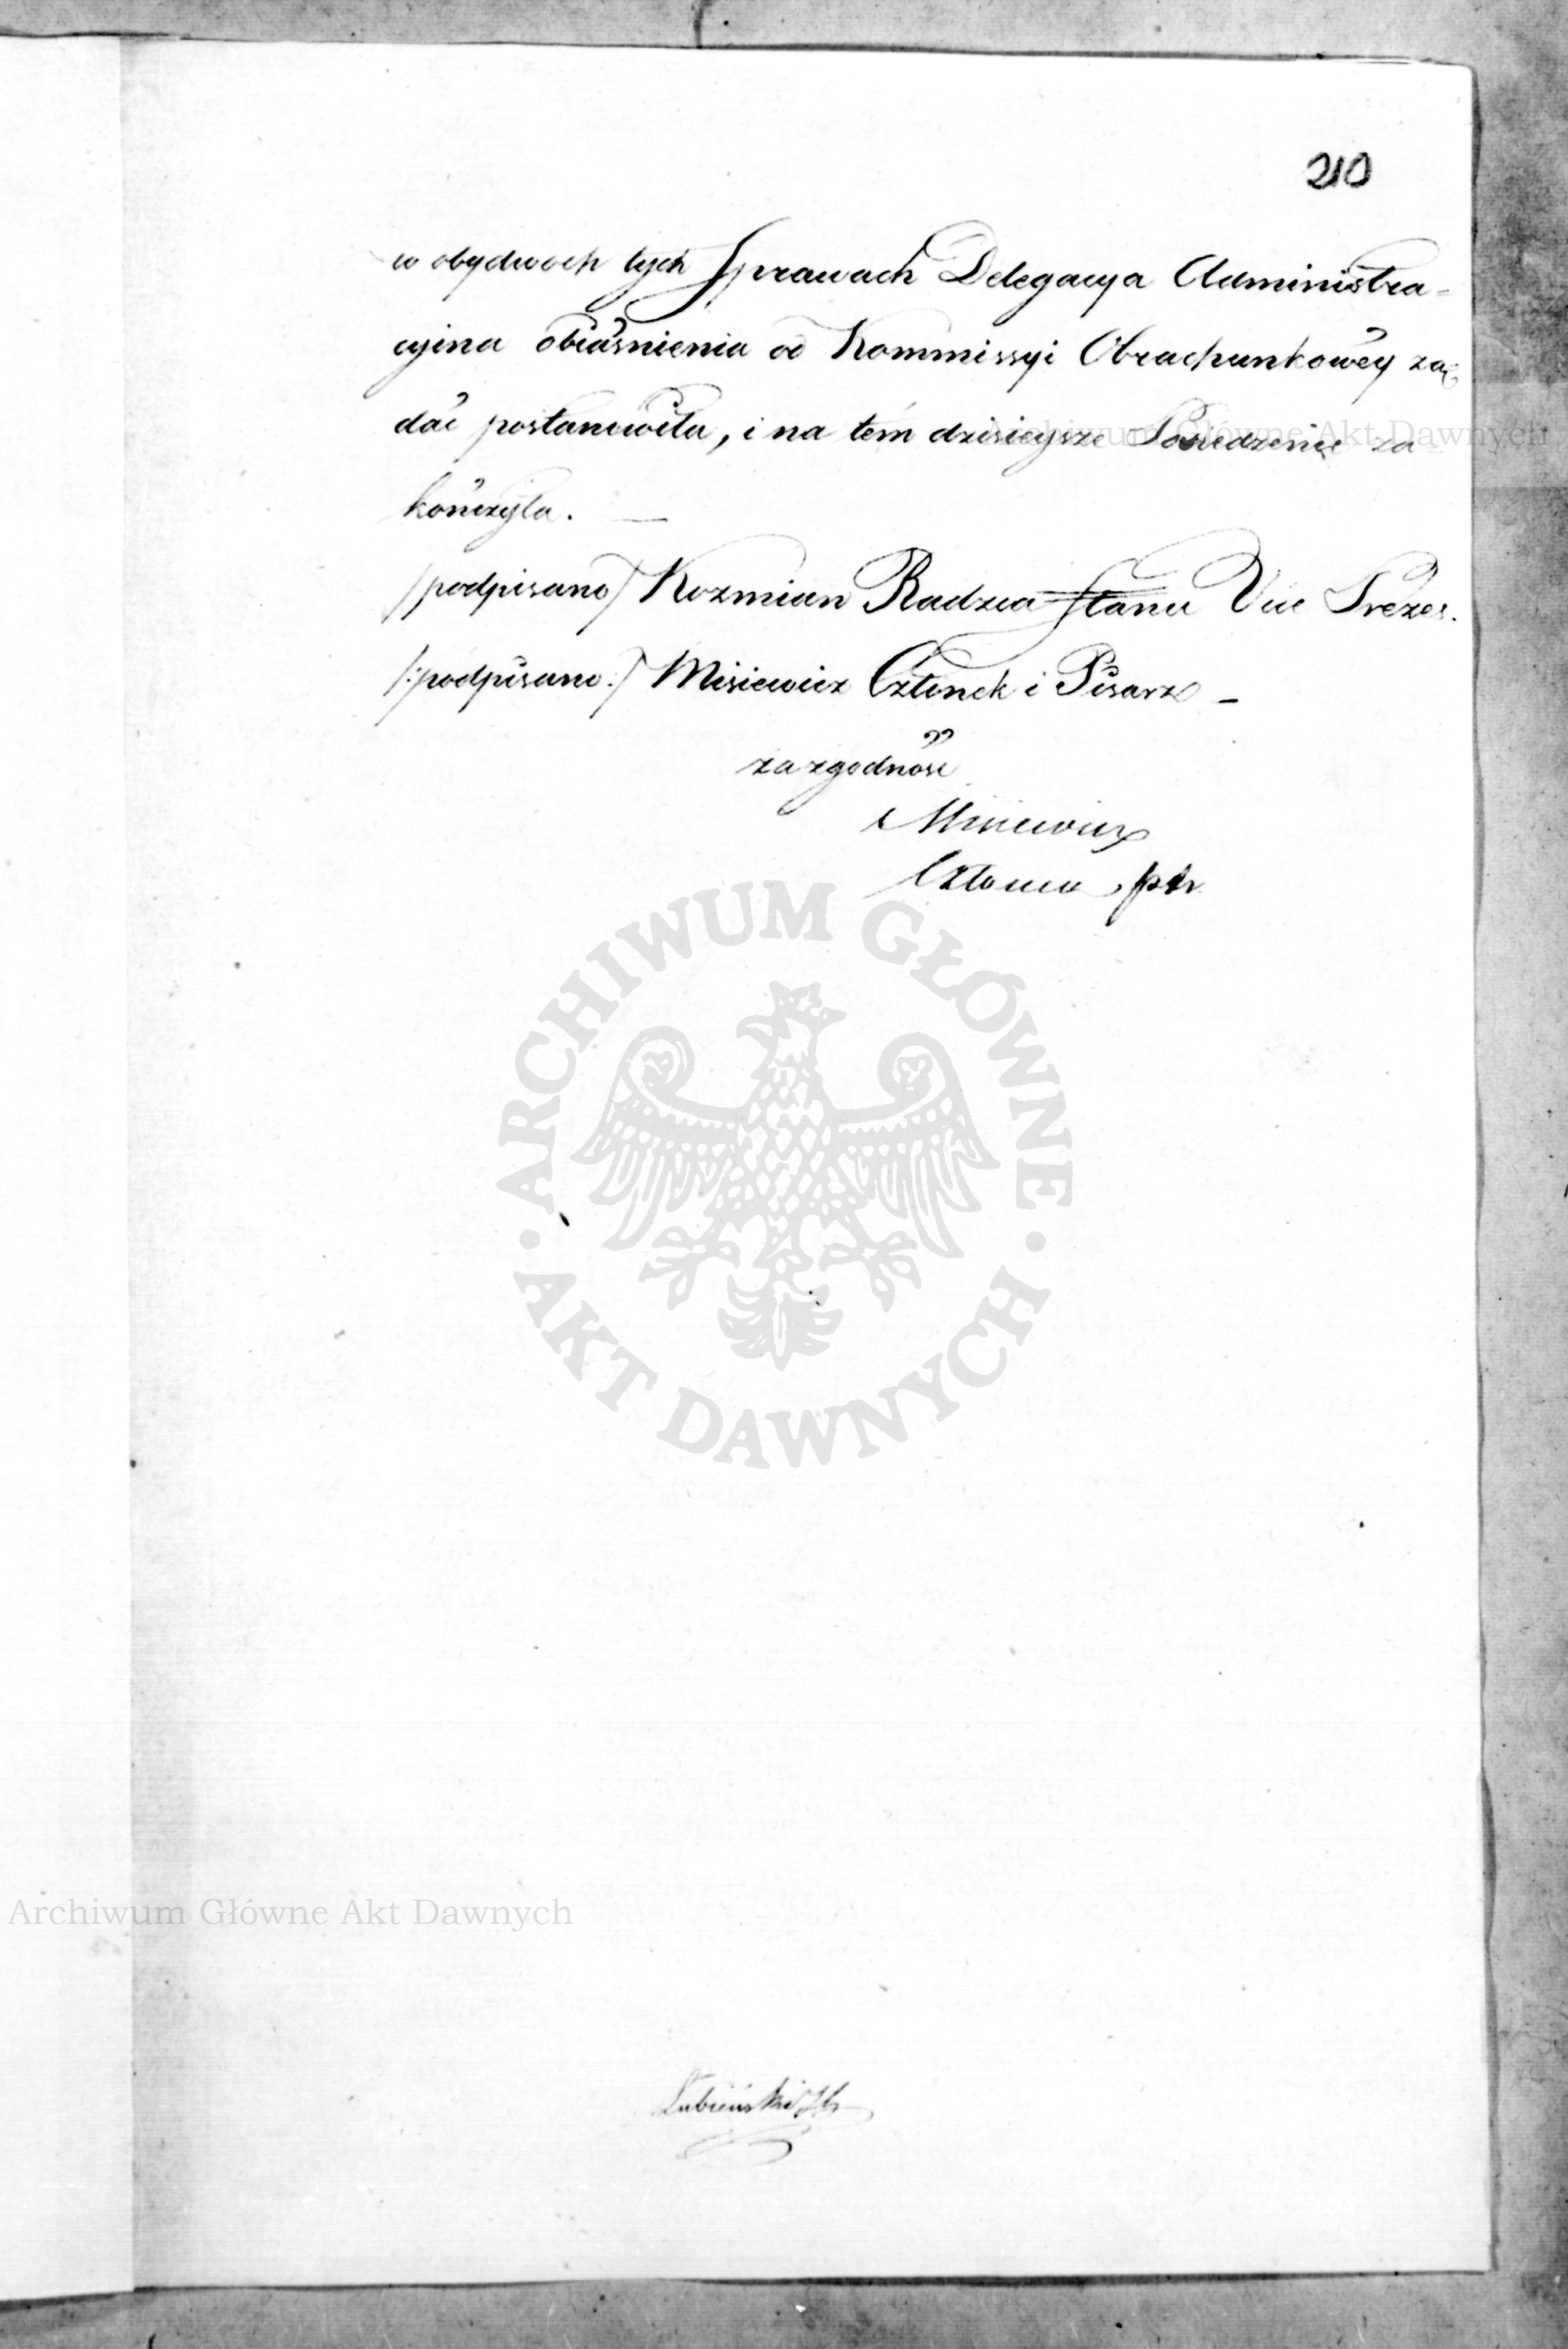 210
w obydwoch tych Sprawach Delegacya Administra-
cyina obiaśnienia od Kommissyi Obrachunkowéy zaż
dać postanowiła, i na tém dzisieysze Posiedzenie za
kończyła. —
/podpisano/ Kozmian Radzca Stanu Vice Prezes.
/:podpisano:/ Misiewicz Członek i Pisarz —
za zgodność
Misiewicz
Archiwum Główne Akt Dawnych
ARCHIWUM GŁÓWNE
AKT DAWNYCH
Archiwum Główne Akt Dawnych
Lubieński